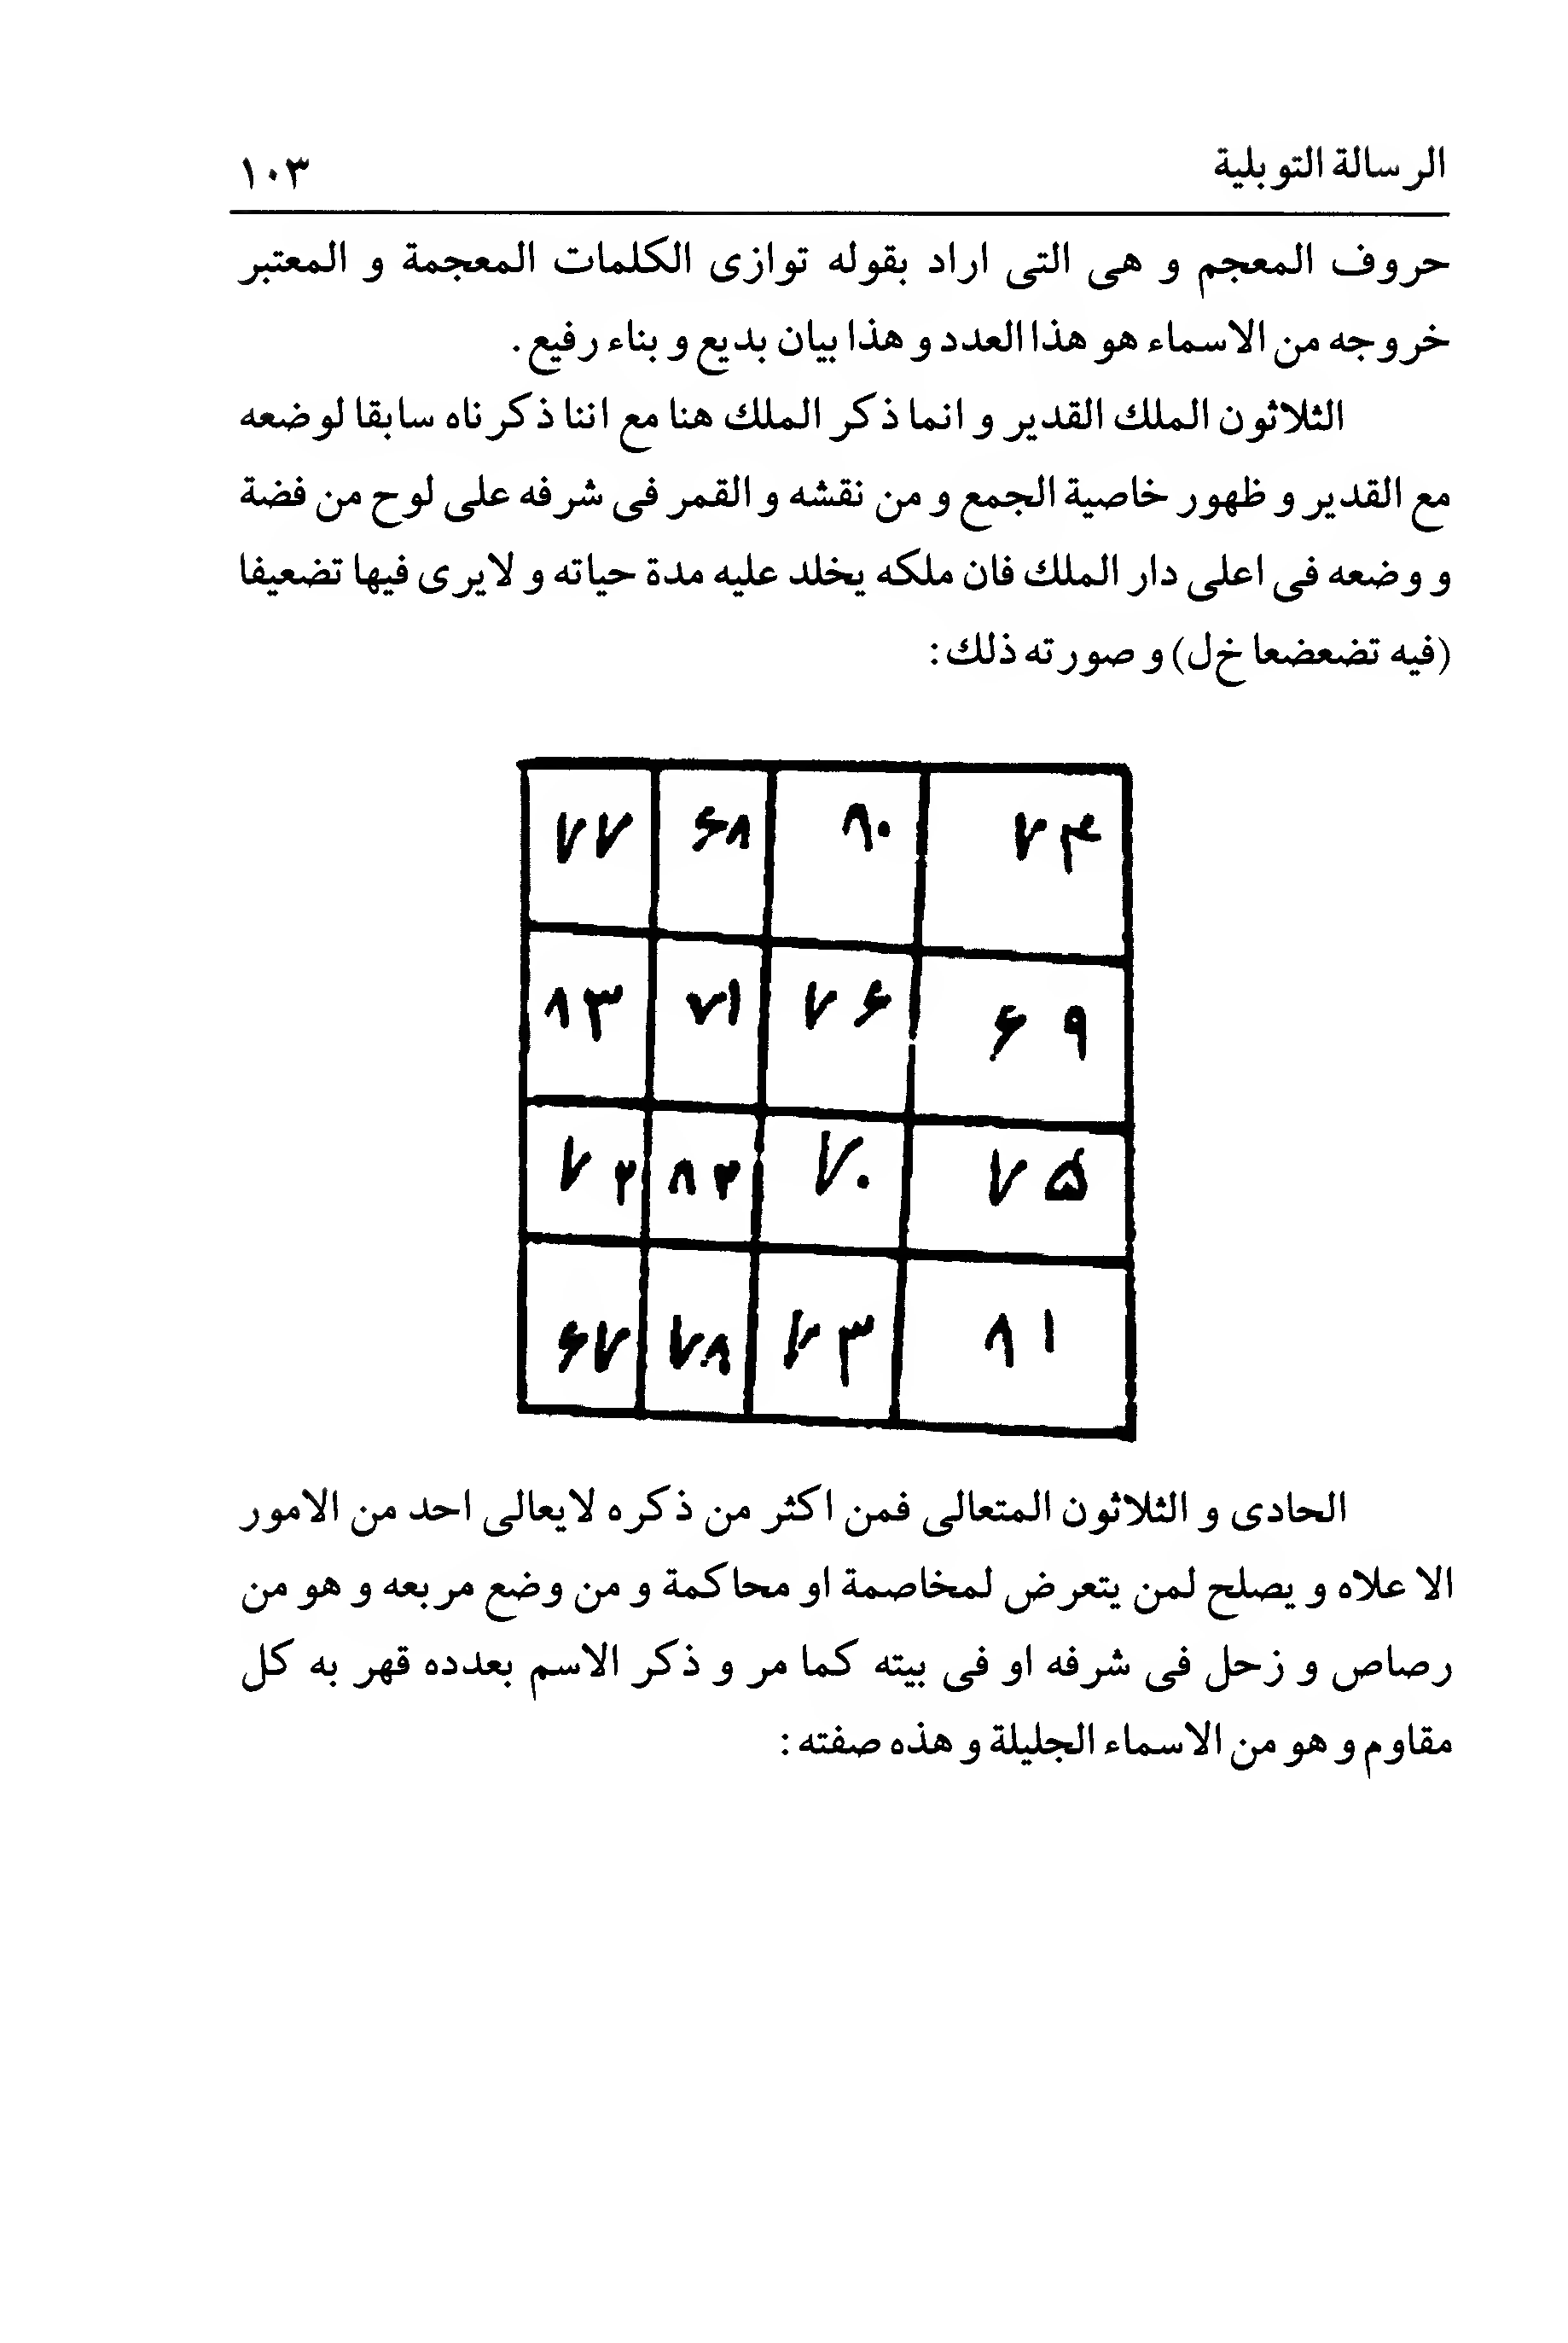 الرسالة التوبلية ۱۰۳
حروف المعجم و هى التى اراد بقوله توازى الكلمات المعجمة و المعتبر
خروجه من الاسماء هو هذا العدد و هذا بيان بديع و بناء رفيع .
الثلاثون الملك القدير و انما ذكر الملك هنا مع اننا ذكرناه سابقا لوضعه
مع القدير و ظهور خاصية الجمع و من نقشه و القمر فى شرفه على لوح من فضة
و وضعه فى اعلى دار الملك فان ملكه يخلد عليه مدة حياته و لايرى فيها تضعيفا
(فيه تضعضعا خ‌ل) و صورته ذلك :
۷۴ ۸۰ ۶۸ ۷۷
۶۹ ۷۶ ۷۱ ۸۳
۷۵ ۷۰ ۸۲ ۷۲
۸۱ ۷۳ ۷۸ ۶۷
الحادى و الثلاثون المتعالى فمن اكثر من ذكره لايعالى احد من الامور
الا علاه و يصلح لمن يتعرض لمخاصمة او محاكمة و من وضع مربعه و هو من
رصاص و زحل فى شرفه او فى بيته كما مر و ذكر الاسم بعدده قهر به كل
مقاوم و هو من الاسماء الجليلة و هذه صفته :